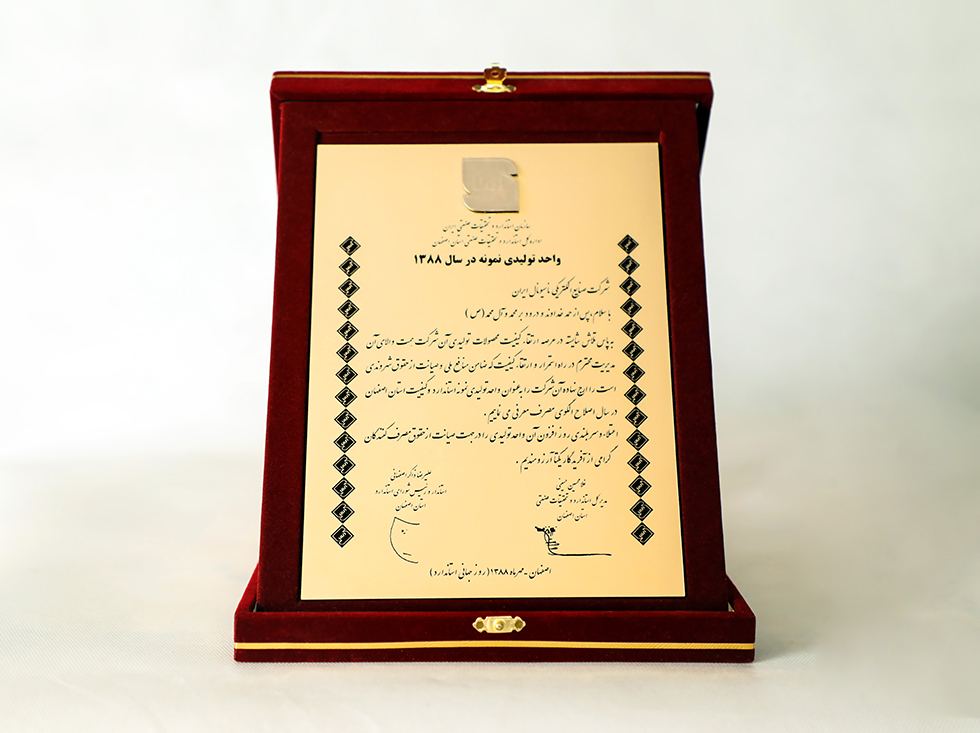 سازمان استاندارد و تحقیقات صنعتی ایران
اداره کل استاندارد و تحقیقات صنعتی استان اصفهان
واحد تولیدی نمونه در سال ۱۳۸۸
شرکت صنایع الکتریکی ناسیونال ایران
با سلام، پس از حمد خداوند و درود بر محمد و آل محمد (ص)
به پاس تلاش شایسته در عرصه ارتقاء کیفیت محصولات تولیدی آن شرکت همت والای آن
مدیریت محترم در راه استمرار و ارتقاء کیفیت که ضامن منافع ملی و صیانت از حقوق شهروندی
است را ارج نهاده آن شرکت را به عنوان واحد تولیدی نمونه استاندارد و کیفیت استان اصفهان
در سال اصلاح الگوی مصرف معرفی می نماییم .
اعتلاء و سربلندی روز افزون آن واحد تولیدی را در جهت صیانت از حقوق مصرف کنندگان
گرامی از آفریدگار یکتا آرزومندیم .
غلامحسین شفیعی
مدیر کل استاندارد و تحقیقات صنعتی
استان اصفهان
علیرضا ذاکر اصفهانی
استاندار و رئیس شورای استاندارد
استان اصفهان
اصفهان - مهرماه ۱۳۸۸ (روز جهانی استاندارد)